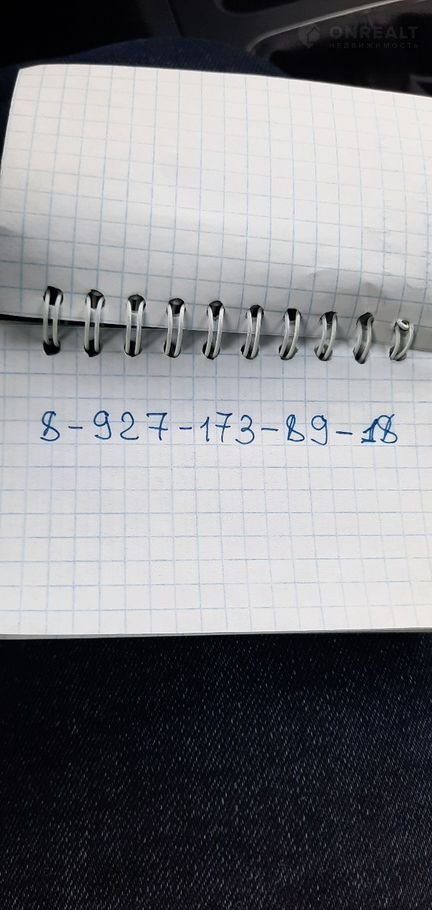 ONREALT
НЕДВИЖИМОСТЬ
8-927-173-89-18